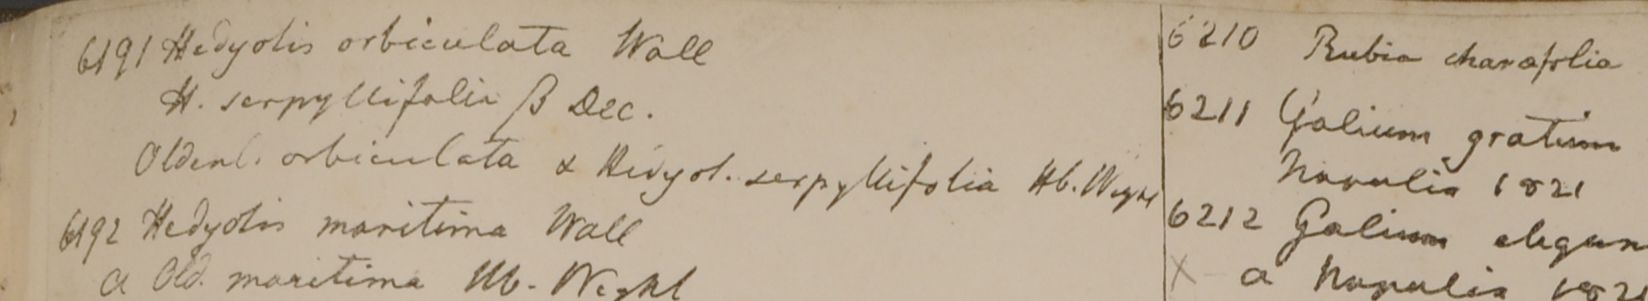 6191 Hedyotis orbiculata Wall
H. serpyllifolia β Dec.
Oldenl. orbiculata & Hedyot. serpyllifolia Hb. Wight
6192 Hedyotis maritima Wall
a Old. maritima Hb. Wight
6210 Rubia charæfolia
6211 Galium gratum
Napalia 1821
6212 Galium elegans
X a Napalia 1821